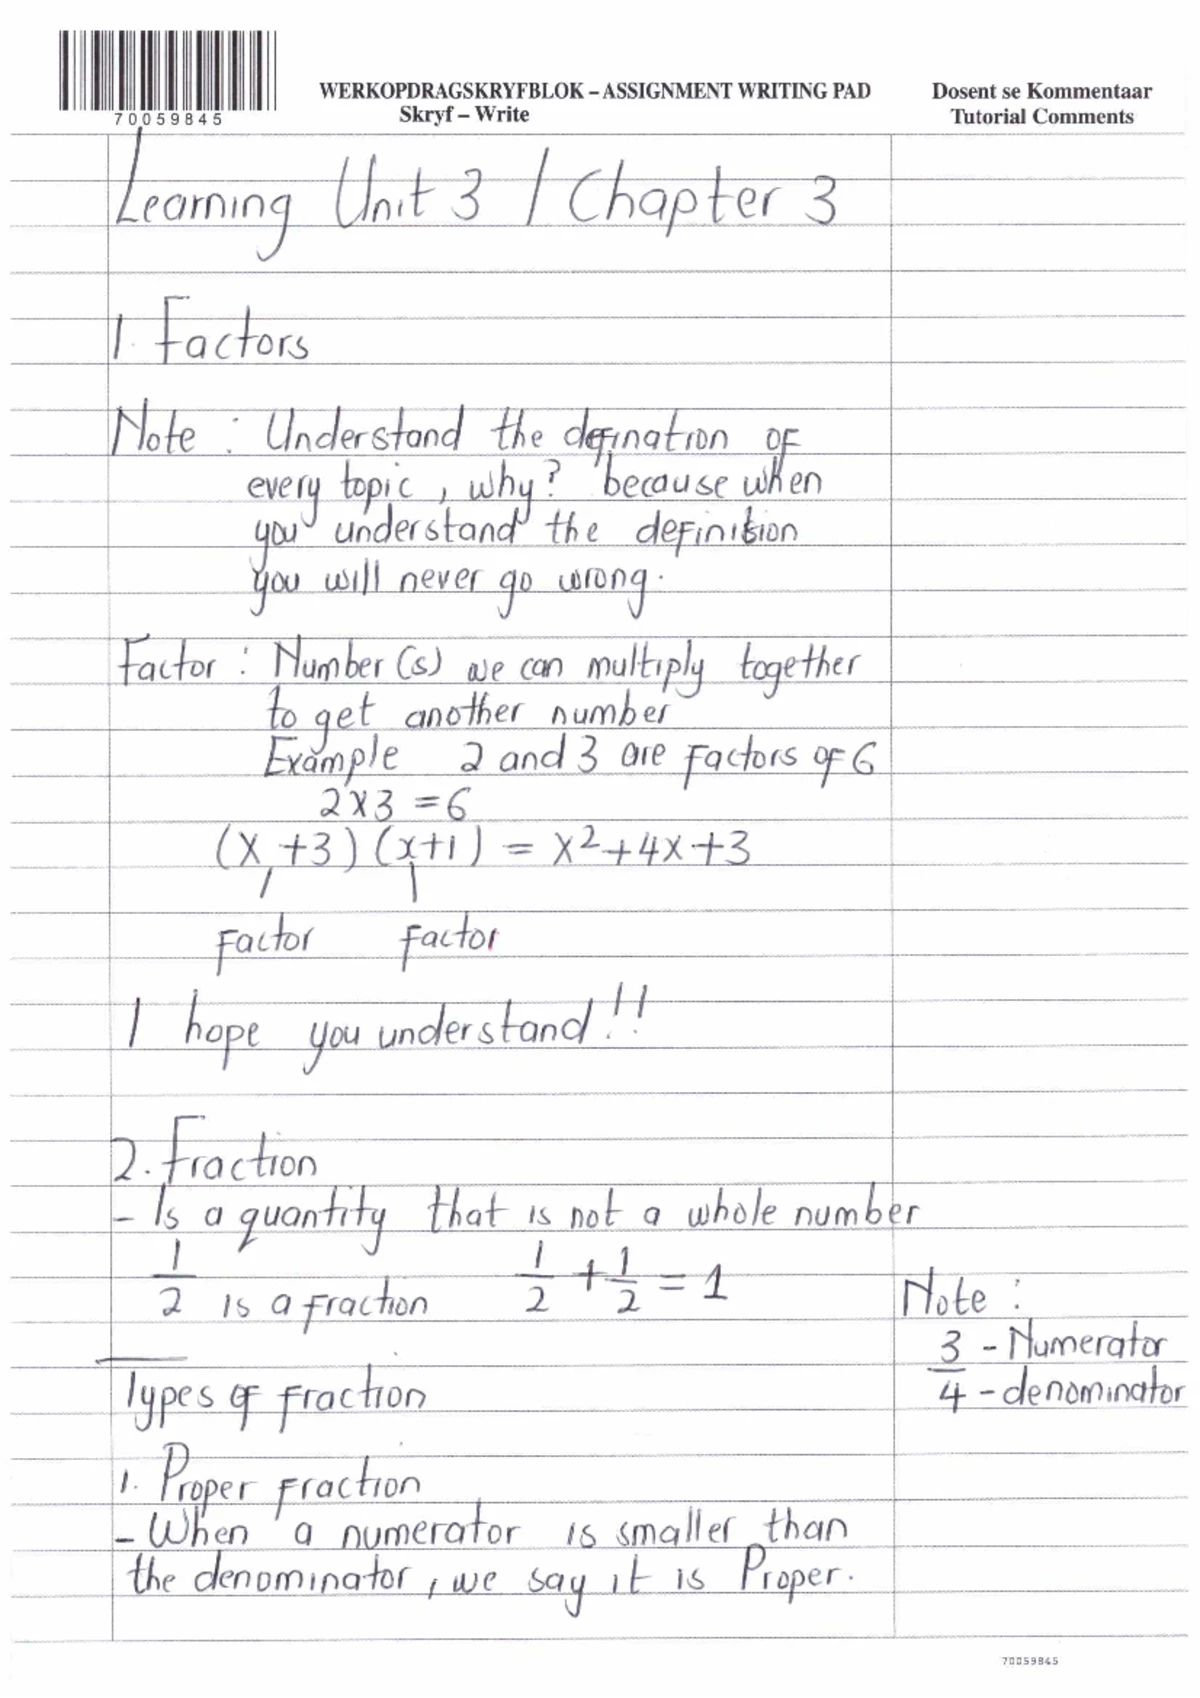 70059845
WERKOPDRAGSKRYFBLOK – ASSIGNMENT WRITING PAD
Skryf – Write
Dosent se Kommentaar
Tutorial Comments
Learning Unit 3 / Chapter 3
1. Factors
Note : Understand the defination of
every topic, why? because when
you understand the definition
you will never go wrong.
Factor : Number(s) we can multiply together
to get another number
Example 2 and 3 are factors of 6
2x3 = 6
(x+3)(x+1) = x²+4x+3
factor factor
I hope you understand!!
2. Fraction
- Is a quantity that is not a whole number
1/2 is a fraction 1/2 + 1/2 = 1
Note :
3 - Numerator
4 - denominator
Types of fraction
1. Proper fraction
- When a numerator is smaller than
the denominator, we say it is Proper.
70059845